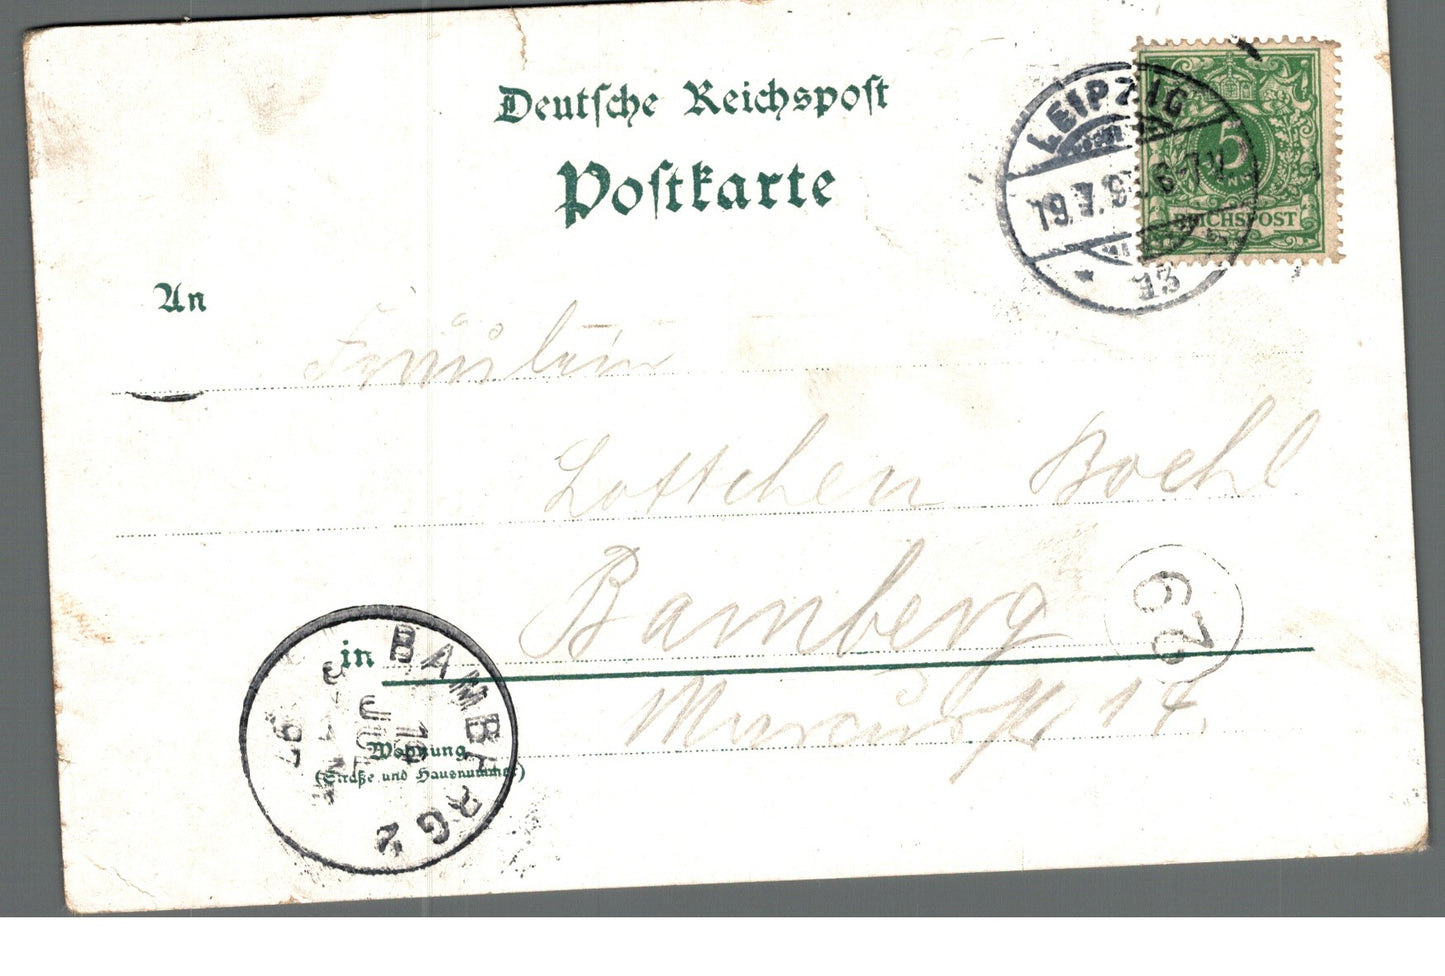 Deutsche Reichspost
Postkarte
LEIPZIG
19.7.97. 6-7 V.
13
5
REICHSPOST
An
Fräulein
Lottchen Boehl
in Bamberg
67
Wohnung
(Straße und Hausnummer)
14.
BAMBERG 2
19
JUL
97